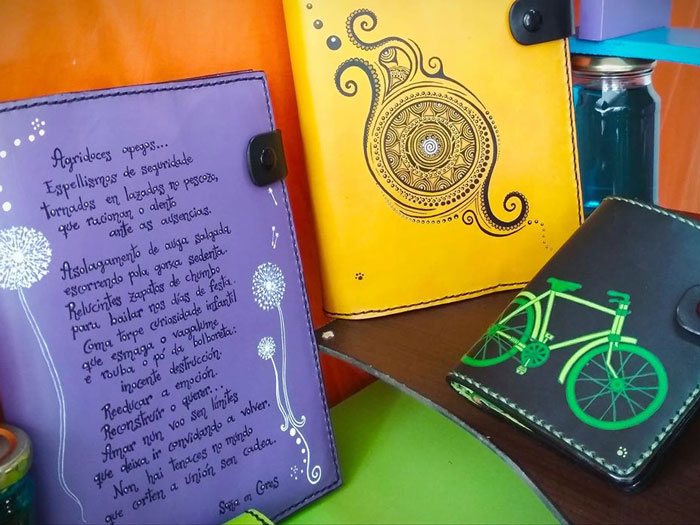 Agridoces apegos...
Espellismos de seguridade
tornados en lazadas no pescozo,
que racionan o alento
ante as ausencias.
Asolagamento de auga salgada
escorrendo pola gorxa sedenta.
Relucintes zapatos de chumbo
para bailar nos días de festa.
Coma torpe curiosidade infantil
que esmaga o vagalume
e rouba o pó da bolboreta:
inocente destrucción.
Reeducar a emoción.
Reconstruir o querer...
Amar nun voo sen límites
que deixa ir convidando a volver.
Non hai tenaces no mundo
que corten a unión sen cadea.
Soña en Cores